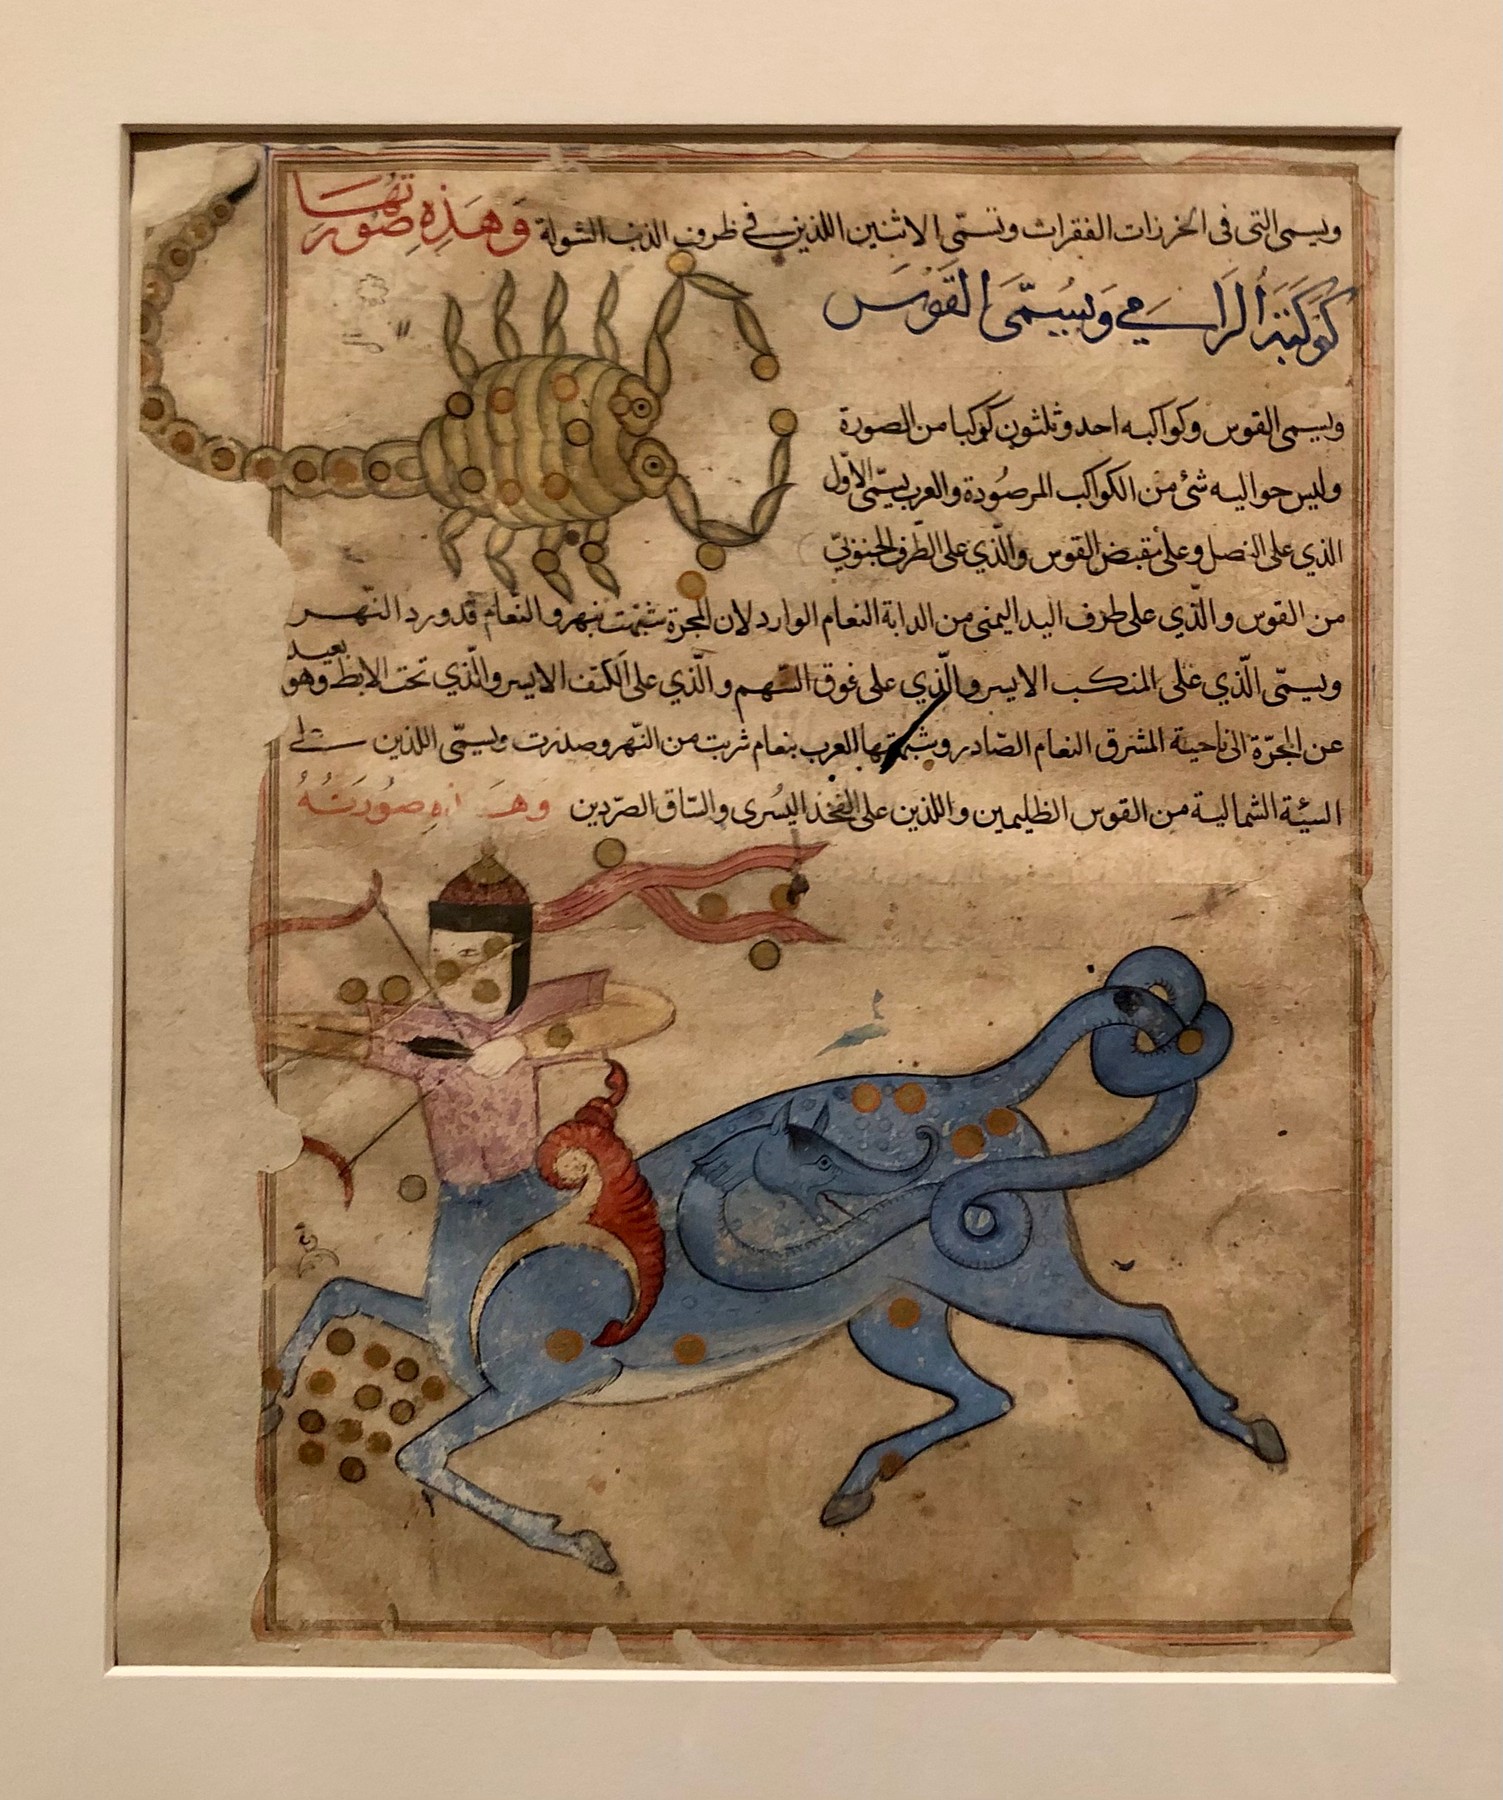 ويسمى التي في الخرزات الفقرات وتسمى الاثنين اللذين في طرف الذنب الشولة وَهَذِهِ صُورَتُهَا
كَوْكَبَةُ الرَامِي وَيُسَمَّى القَوْسَ
ويسمى القوس وكواكبه احد وثلثون كوكبا من الصورة
وليس حواليه شئ من الكواكب المرصُودة والعرب يسمّى الاوّل
الذي على النصل وعلى مقبض القوس والّذي على الطّرف الجنوبيّ
من القوس والّذي على طرف اليد اليمنى من الدابة النعام الوارد لان المجرة شبّهت بنهر والنعام قد ورد النّهر
ويسمّى الّذي على المنكب الايسر والّذي على فوق السّهم والّذي على الكتف الايسر والّذي تحت الابط وهو بعيد
عن المجرّة الى ناحية المشرق النعام الصّادر وشبّهتها العرب بنعام شربت من النّهر وصدرت ويسمّى اللذين على
السيّة الشمالية من القوس الظليمين واللذين على الفخذ اليُسرى والسّاق الصّردين وهَذِهِ صُورَتُهُ